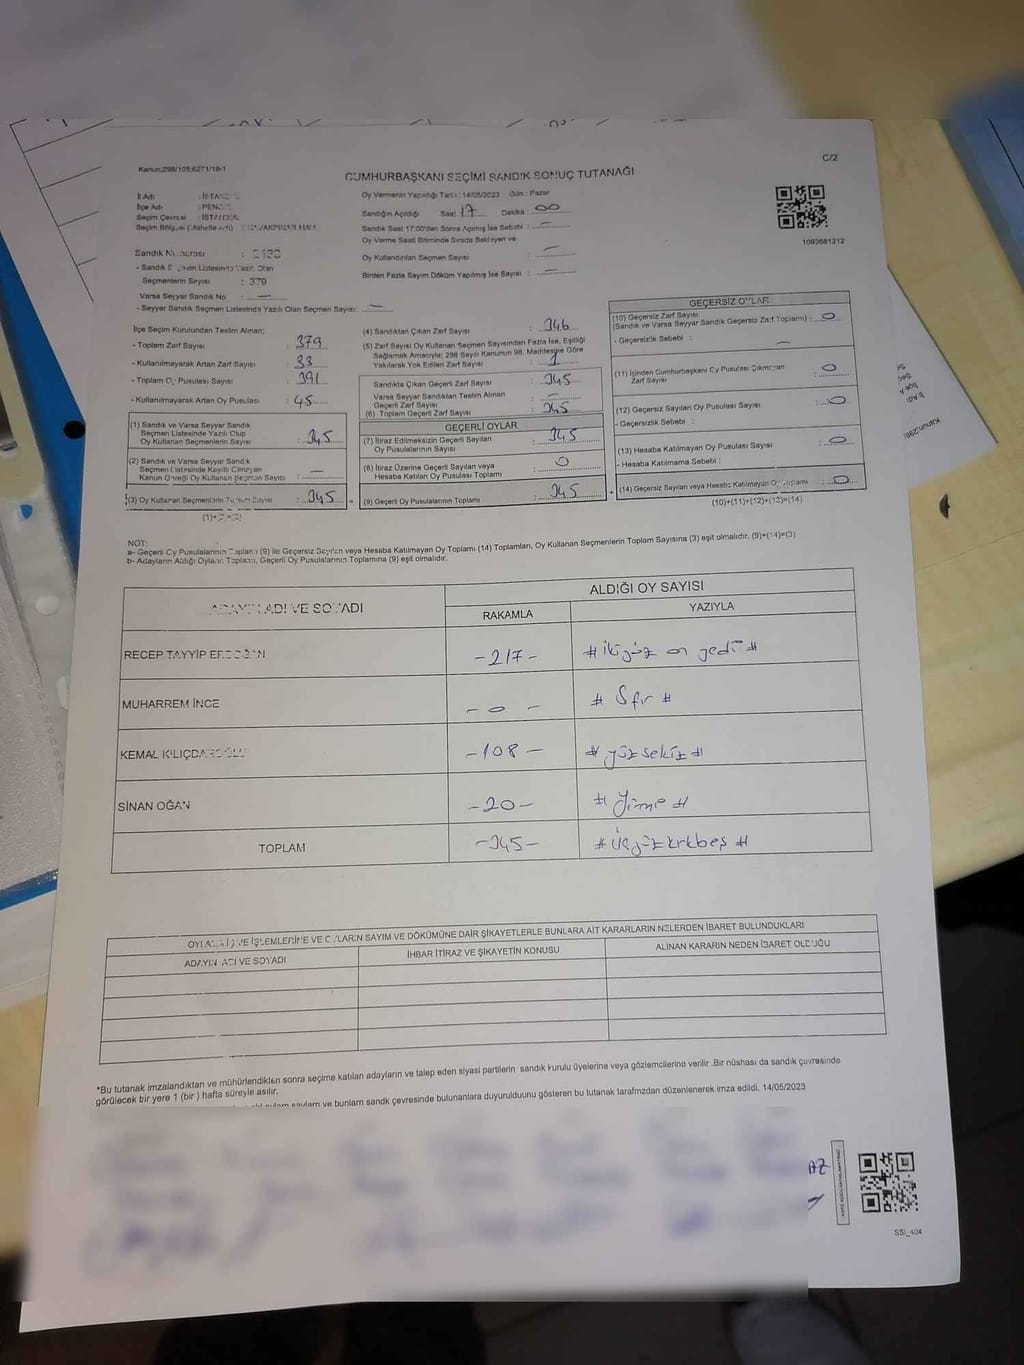 Kanun:298/105;6271/16-1
C/2
CUMHURBAŞKANI SEÇİMİ SANDIK SONUÇ TUTANAĞI
İl Adı : İSTANBUL
İlçe Adı : PENDİK
Seçim Çevresi : İSTANBUL
Oy Vermenin Yapıldığı Tarih : 14/05/2023 Gün : Pazar
Sandığın Açıldığı Saat : 17 Dakika : 00
Sandık Saat 17:00'den Sonra Açılmış İse Sebebi : —
Oy Verme Saati Bitiminde Sırada Bekleyen ve
Oy Kullandırılan Seçmen Sayısı : —
Birden Fazla Sayım Döküm Yapılmış İse Sayısı : —
1093681212
Sandık Numarası :
- Sandık Seçmen Listesinde Yazılı Olan
Seçmenlerin Sayısı : 379
Varsa Seyyar Sandık No : —
- Seyyar Sandık Seçmen Listesinde Yazılı Olan Seçmen Sayısı: —
İlçe Seçim Kurulundan Teslim Alınan;
- Toplam Zarf Sayısı : 379
- Kullanılmayarak Artan Zarf Sayısı : 33
- Toplam Oy Pusulası Sayısı : 391
- Kullanılmayarak Artan Oy Pusulası : 45
(1) Sandık ve Varsa Seyyar Sandık
Seçmen Listesinde Yazılı Olup
Oy Kullanan Seçmenlerin Sayısı : 345
(2) Sandık ve Varsa Seyyar Sandık
Seçmen Listesinde Kayıtlı Olmayan
Kanun Gereği Oy Kullanan Seçmen Sayısı : —
(3) Oy Kullanan Seçmenlerin Toplam Sayısı : 345
(1)+(2)=(3)
(4) Sandıktan Çıkan Zarf Sayısı : 346
(5) Zarf Sayısı Oy Kullanan Seçmen Sayısından Fazla İse, Eşitliği
Sağlamak Amacıyla; 298 Sayılı Kanunun 98. Maddesine Göre
Yakılarak Yok Edilen Zarf Sayısı : 1
Sandıkta Çıkan Geçerli Zarf Sayısı : 345
Varsa Seyyar Sandıktan Teslim Alınan
Geçerli Zarf Sayısı : —
(6) Toplam Geçerli Zarf Sayısı : 345
GEÇERLİ OYLAR
(7) İtiraz Edilmeksizin Geçerli Sayılan
Oy Pusulalarının Sayısı : 345
(8) İtiraz Üzerine Geçerli Sayılan veya
Hesaba Katılan Oy Pusulası Toplamı : 0
(9) Geçerli Oy Pusulalarının Toplamı : 345
GEÇERSİZ OYLAR
(10) Geçersiz Zarf Sayısı
(Sandık ve Varsa Seyyar Sandık Geçersiz Zarf Toplamı) : 0
- Geçersizlik Sebebi : —
(11) İçinden Cumhurbaşkanı Oy Pusulası Çıkmayan
Zarf Sayısı : 0
(12) Geçersiz Sayılan Oy Pusulası Sayısı : 0
- Geçersizlik Sebebi :
(13) Hesaba Katılmayan Oy Pusulası Sayısı : 0
- Hesaba Katılmama Sebebi :
(14) Geçersiz Sayılan veya Hesaba Katılmayan Oy Toplamı : 0
(10)+(11)+(12)+(13)=(14)
NOT:
a- Geçerli Oy Pusulalarının Toplamı (9) ile Geçersiz Sayılan veya Hesaba Katılmayan Oy Toplamı (14) Toplamları, Oy Kullanan Seçmenlerin Toplam Sayısına (3) eşit olmalıdır. (9)+(14)=(3)
b- Adayların Aldığı Oyların Toplamı, Geçerli Oy Pusulalarının Toplamına (9) eşit olmalıdır.
ADAYIN ADI VE SOYADI
ALDIĞI OY SAYISI
RAKAMLA
YAZIYLA
RECEP TAYYİP ERDOĞAN -217- # ikiyüz on yedi #
MUHARREM İNCE - 0 - # Sıfır #
KEMAL KILIÇDAROĞLU -108- # yüzsekiz #
SİNAN OĞAN -20- # Yirmi #
TOPLAM -345- # üçyüzkırkbeş #
OYLAMA İŞ VE İŞLEMLERİNE VE OYLARIN SAYIM VE DÖKÜMÜNE DAİR ŞİKAYETLERLE BUNLARA AİT KARARLARIN NELERDEN İBARET BULUNDUKLARI
ADAYIN ADI VE SOYADI
İHBAR İTİRAZ VE ŞİKAYETİN KONUSU
ALINAN KARARIN NEDEN İBARET OLDUĞU
*Bu tutanak imzalandıktan ve mühürlendikten sonra seçime katılan adayların ve talep eden siyasi partilerin sandık kurulu üyelerine veya gözlemcilerine verilir .Bir nüshası da sandık çevresinde
görülecek bir yere 1 (bir ) hafta süreyle asılır.
sayılam ve bunlarnı sandk çevresinde bulunanlara duyurulduunu gösteren bu tutanak tarafmzdan düzenlenerek imza edildi. 14/05/2023
AZ
SSI_404